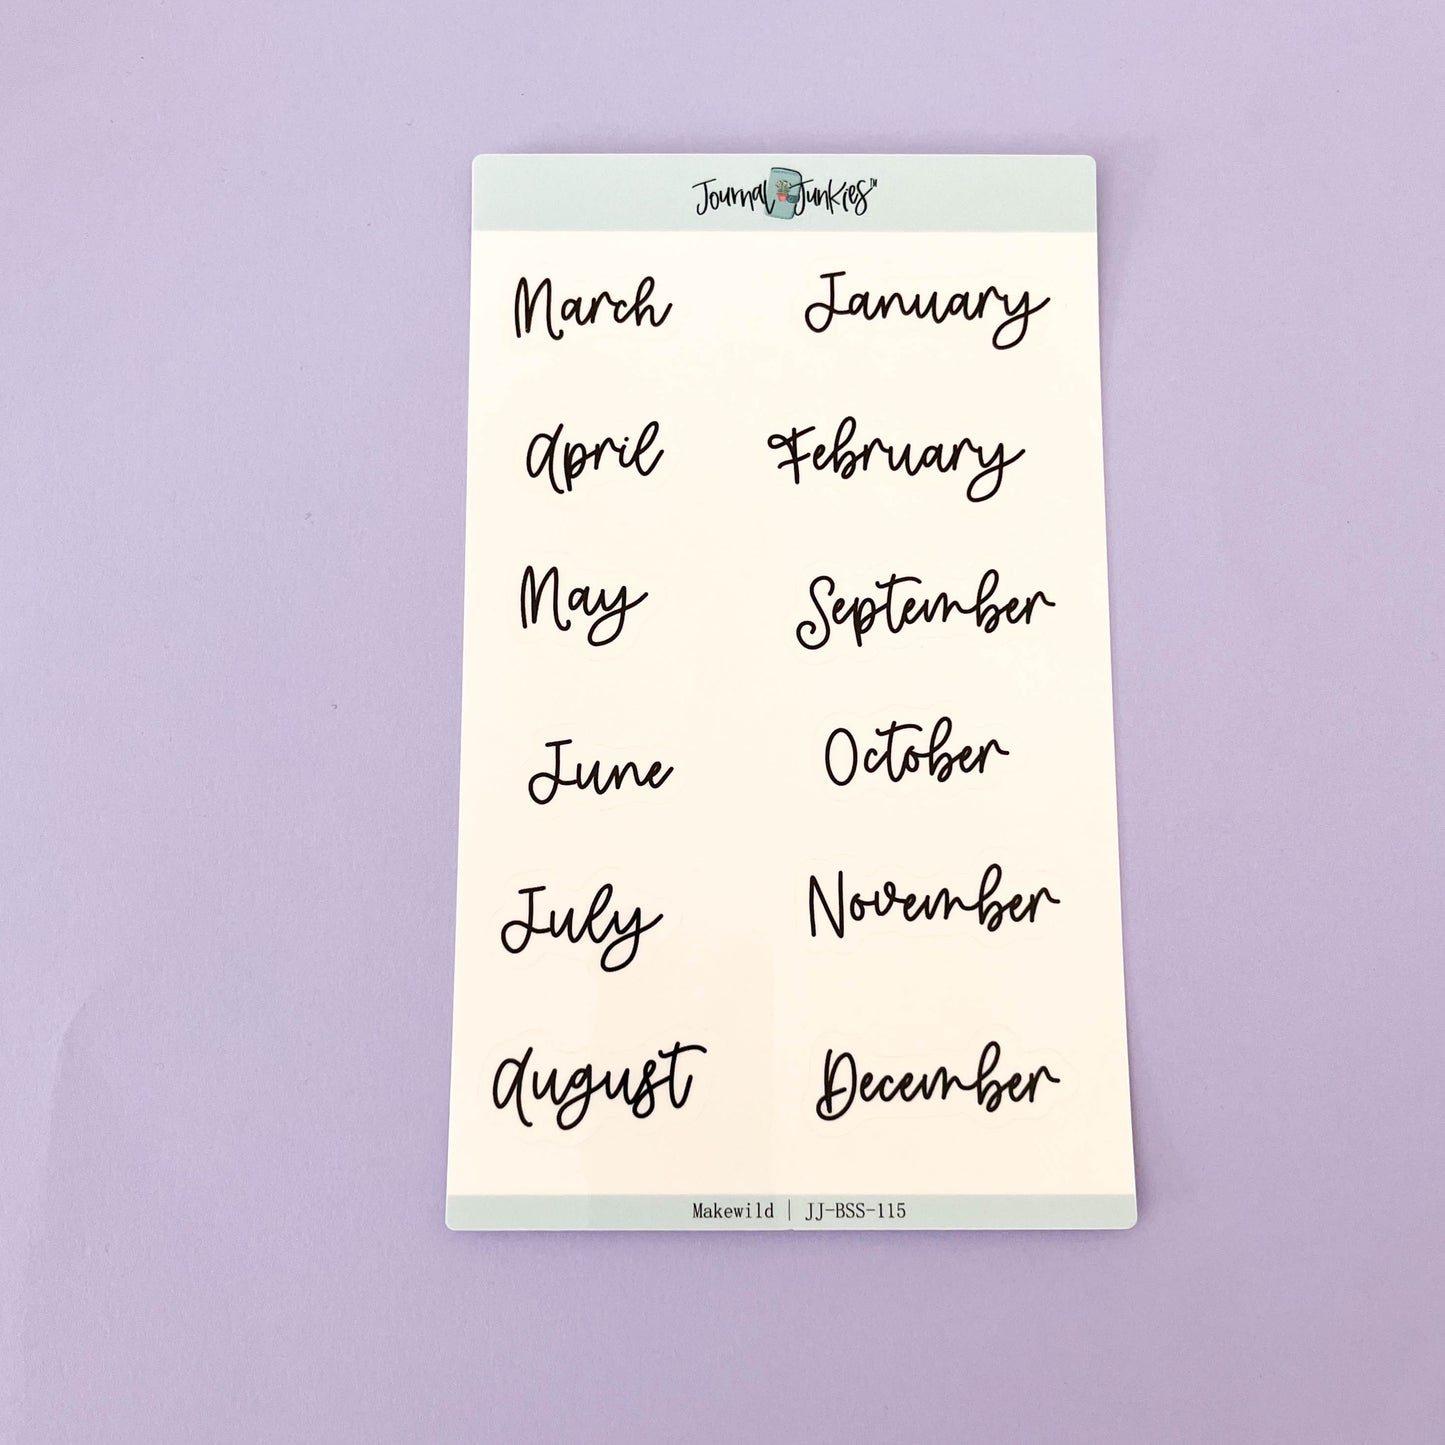 Journal Junkies™
March January
April February
May September
June October
July November
August December
Makewild | JJ-BSS-115